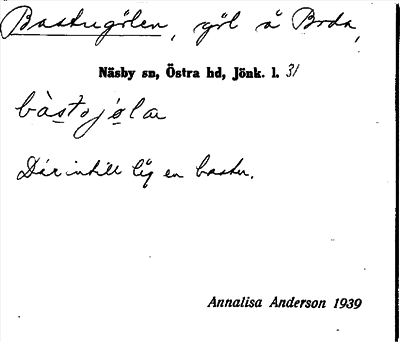 Bastugölen, göl å Boda,
Näsby sn, Östra hd, Jönk. l. 31
bàstojø̣la
Därintill låg en bastu.
Annalisa Anderson 1939